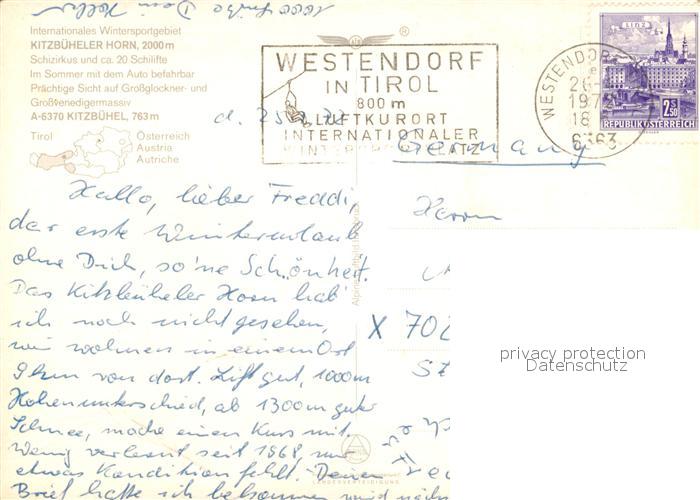 1000 Grüße Dein
Internationales Wintersportgebiet
KITZBÜHELER HORN, 2000 m
Schizirkus und ca. 20 Schilifte
Im Sommer mit dem Auto befahrbar
Prächtige Sicht auf Großglockner- und
Großvenedigermassiv
A-6370 KITZBÜHEL, 763 m
Tirol
Österreich
Austria
Autriche
®
WESTENDORF
IN TIROL
800 m
LUFTKURORT
INTERNATIONALER
WINTERSPORTPLATZ
WESTENDORF
1972
18
6363
LINZ
2S50
REPUBLIK ÖSTERREICH
Germany
Herrn
X 702
privacy protection
Datenschutz
Hallo, lieber Freddi,
der erste Winterurlaub
ohne Dich, so'ne Schönheit.
Das Kitzbüheler Horn hab'
ich noch nicht gesehen,
wir wohnen in einem Ort
9 km von dort. Lift gut, 1000m
Höhenunterschied, ab 1300m guter
Schnee, mache einen Kurs mit.
Wenig verlernt seit 1968, nur
etwas Kondition fehlt. Deinen
Brief hatte ich bekommen, wird
LANDESVERTEIDIGUNG